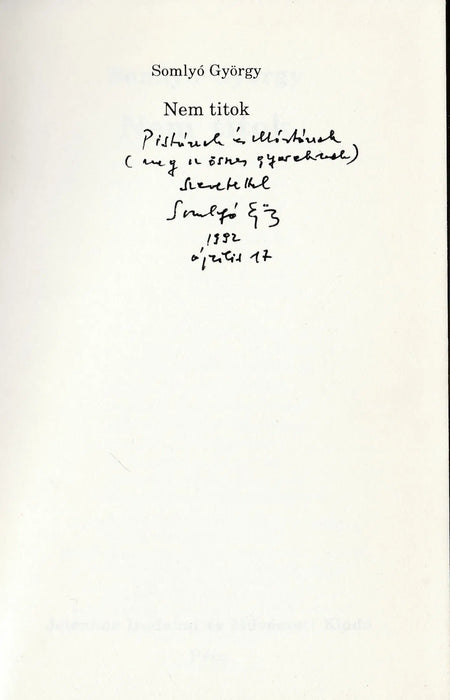 Somlyó György
Nem titok
Pistának és Mártának
(meg az összes gyereknek)
szeretettel
Somlyó Gy
1992
április 17